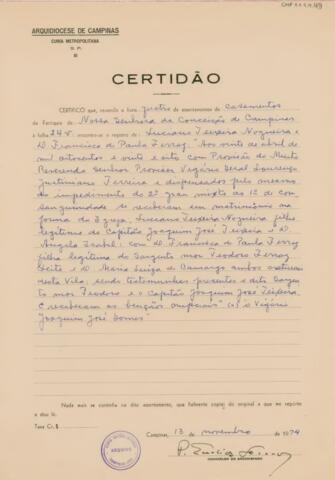 CMP 1.1.4.49
ARQUIDIOCESE DE CAMPINAS
CURIA METROPOLITANA
S. P.
CERTIDÃO
CERTIFICO que, revendo o livro quatro de assentamentos de casamentos
da Paróquia de Nossa Senhora da Conceição de Campinas
à folha 24 v. encontrei o registro de: Luciano Teixeira Nogueira e
D. Francisca de Paula Ferraz. Aos vinte de abril de
mil oitocentos e vinte e oito com Provisão do Muito
Reverendo Senhor Provisor Vigário Geral Lourenço
Justiniano Ferreira e dispensados pelo mesmo
do impedimento de 2º grau mixto ao 1º de con-
sanguinidade se receberam em matrimônio na
forma da Igreja, Luciano Teixeira Nogueira filho
legítimo do Capitão Joaquim José Teixeira e D.
Angela Izabel: com D. Francisca de Paula Ferraz
filha legítima do Sargento mor Teodoro Ferraz
Leite e D. Maria Luiza de Camargo ambos naturais
desta Vila, sendo testemunhas presentes o dito Sargen-
to mor Teodoro e o Capitão Joaquim José Teixeira.
E receberam as bençãos nupciais" (a) o Vigário
Joaquim José Gomes"
Nada mais se continha no dito assentamento, que fielmente copiei do original a que me reporto
e dou fé.
Taxa Cr. $
Campinas, 13 de novembro de 1974
ARQUIVO